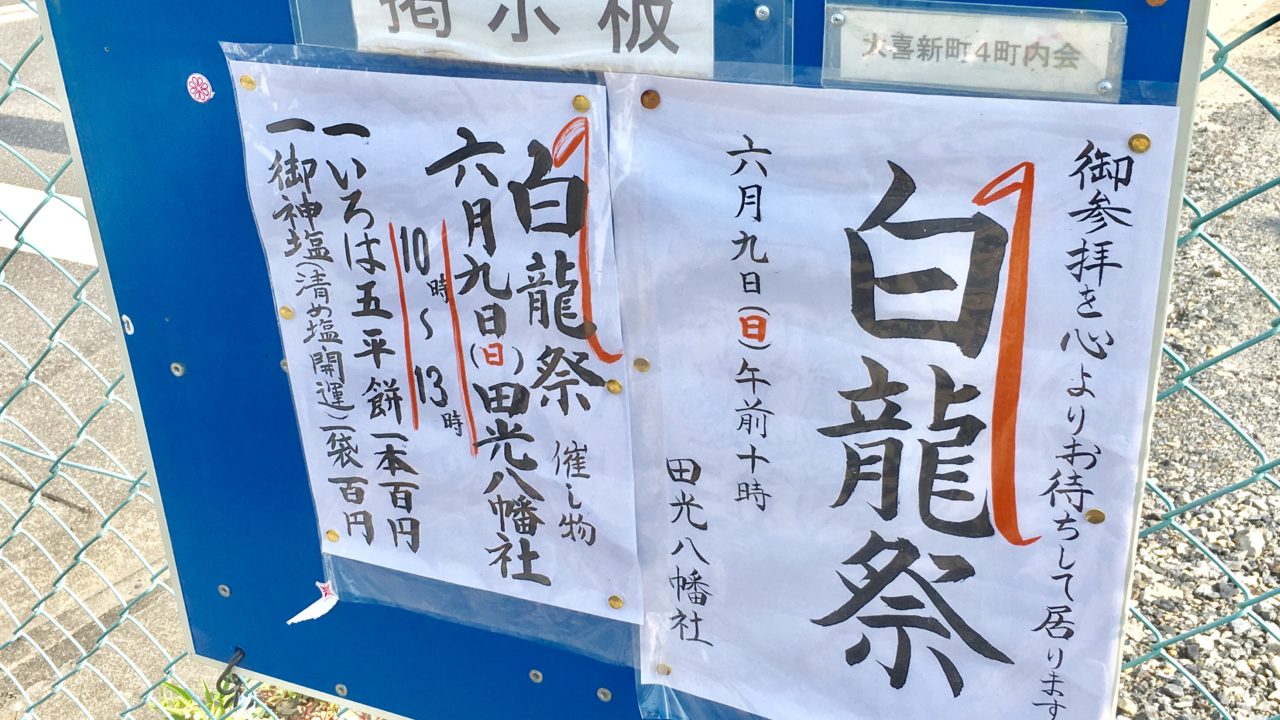 掲示板
大喜新町4町内会
御参拝を心よりお待ちして居ります
白龍祭
六月九日(日)午前十時
田光八幡社
白龍祭 催し物
六月九日(日)田光八幡社
10時~13時
一いろは五平餅一本百円
一御神塩(清め塩開運)一袋百円